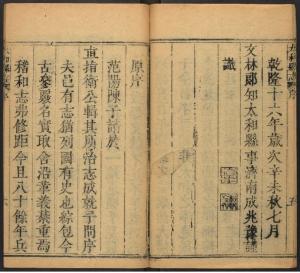 乾隆十六年歲次辛未秋七月
文林郎知太和縣事濟南成兆豫謹
識
原序
范陽陳子
直指衛公輯其所治志成就予問序
夫邑有志猶列國有史也綜包今
古參覈名實取舍沿革義綦重焉
稽和志弗修距今且八十餘年兵